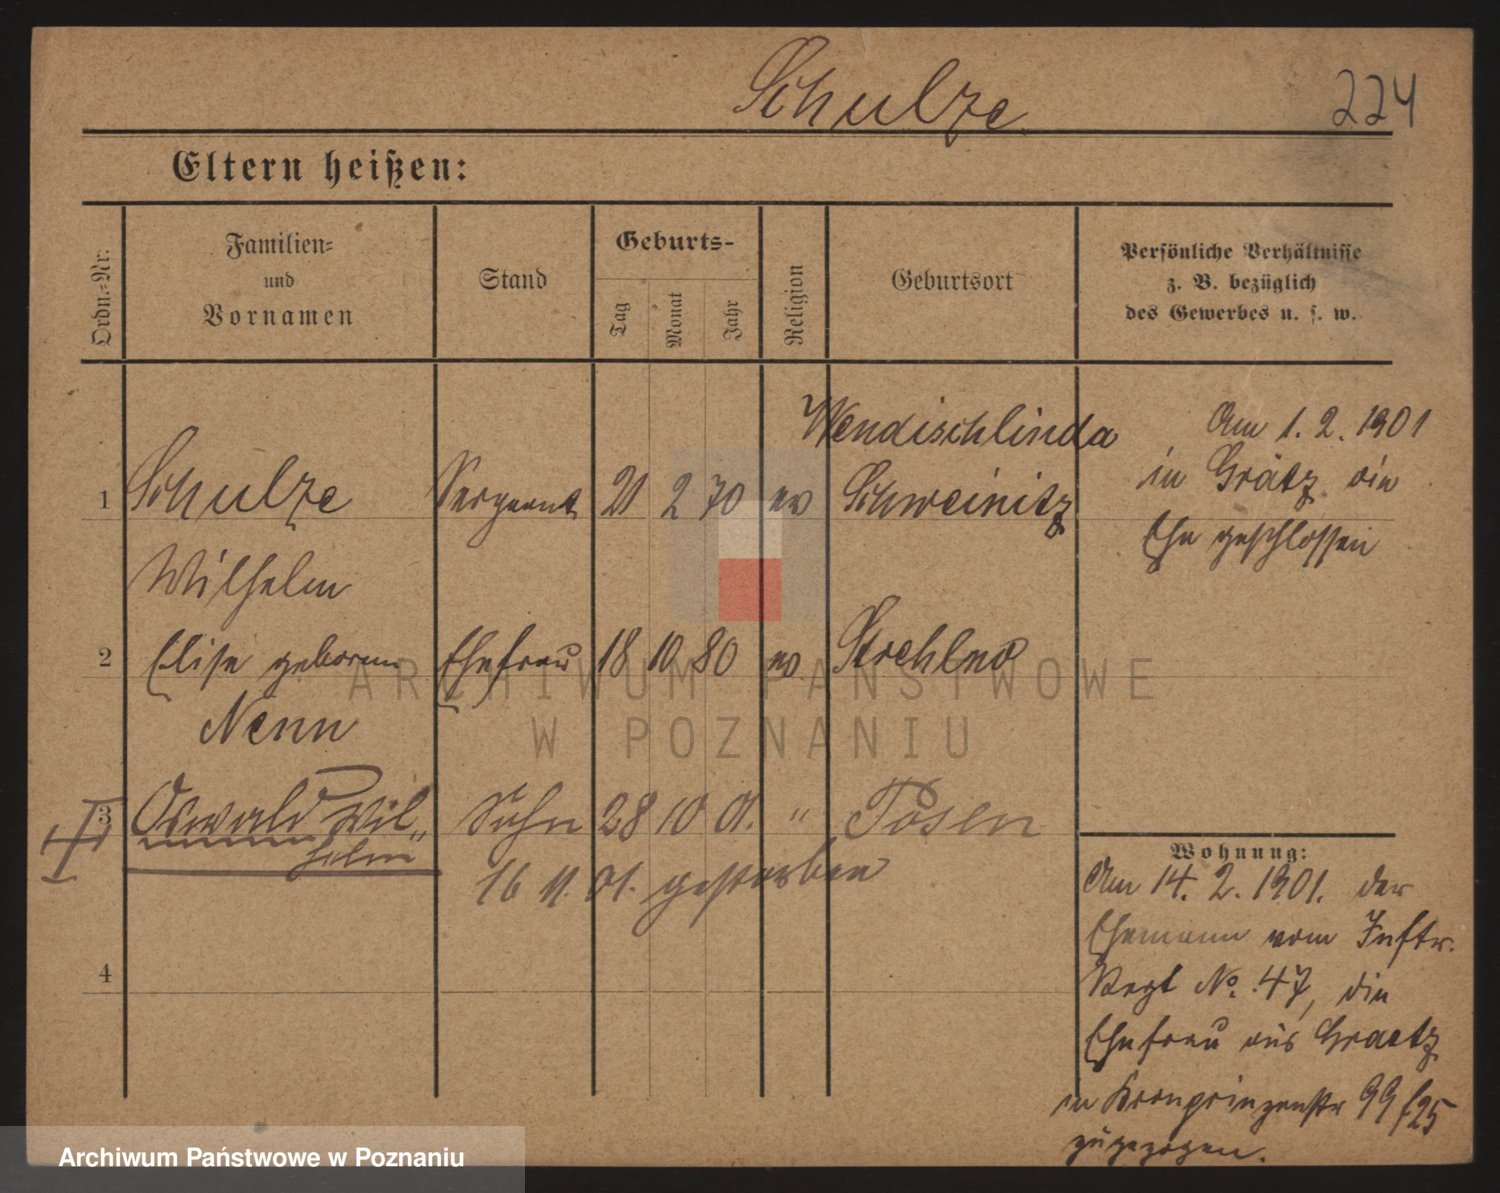 Schulze
224
Eltern heißen:
Ordn.=Nr.
Familien=
und
Vornamen
Stand
Geburts-
Tag
Monat
Jahr
Religion
Geburtsort
Persönliche Verhältnisse
z. B. bezüglich
des Gewerbes u. s. w.
Wendischlinda
1 Schulze Sergeant 21 2 70 ev Schweinitz
Wilhelm
Am 1. 2. 1901
in Grätz die
Ehe geschlossen
2 Elise geborene Ehefrau 18 10 80 ev Strehlno
Nenn
3 Oswald Wil„ Sohn 28 10 01. " Posen
helm
16 11. 01. gestorben
4
Wohnung:
Am 14. 2. 1901. der
Ehemann vom Inftr.
Regt No. 47, die
Ehefrau aus Graetz
in Kronprinzenstr 99/25
zugezogen.
ARCHIWUM PAŃSTWOWE
W POZNANIU
Archiwum Państwowe w Poznaniu